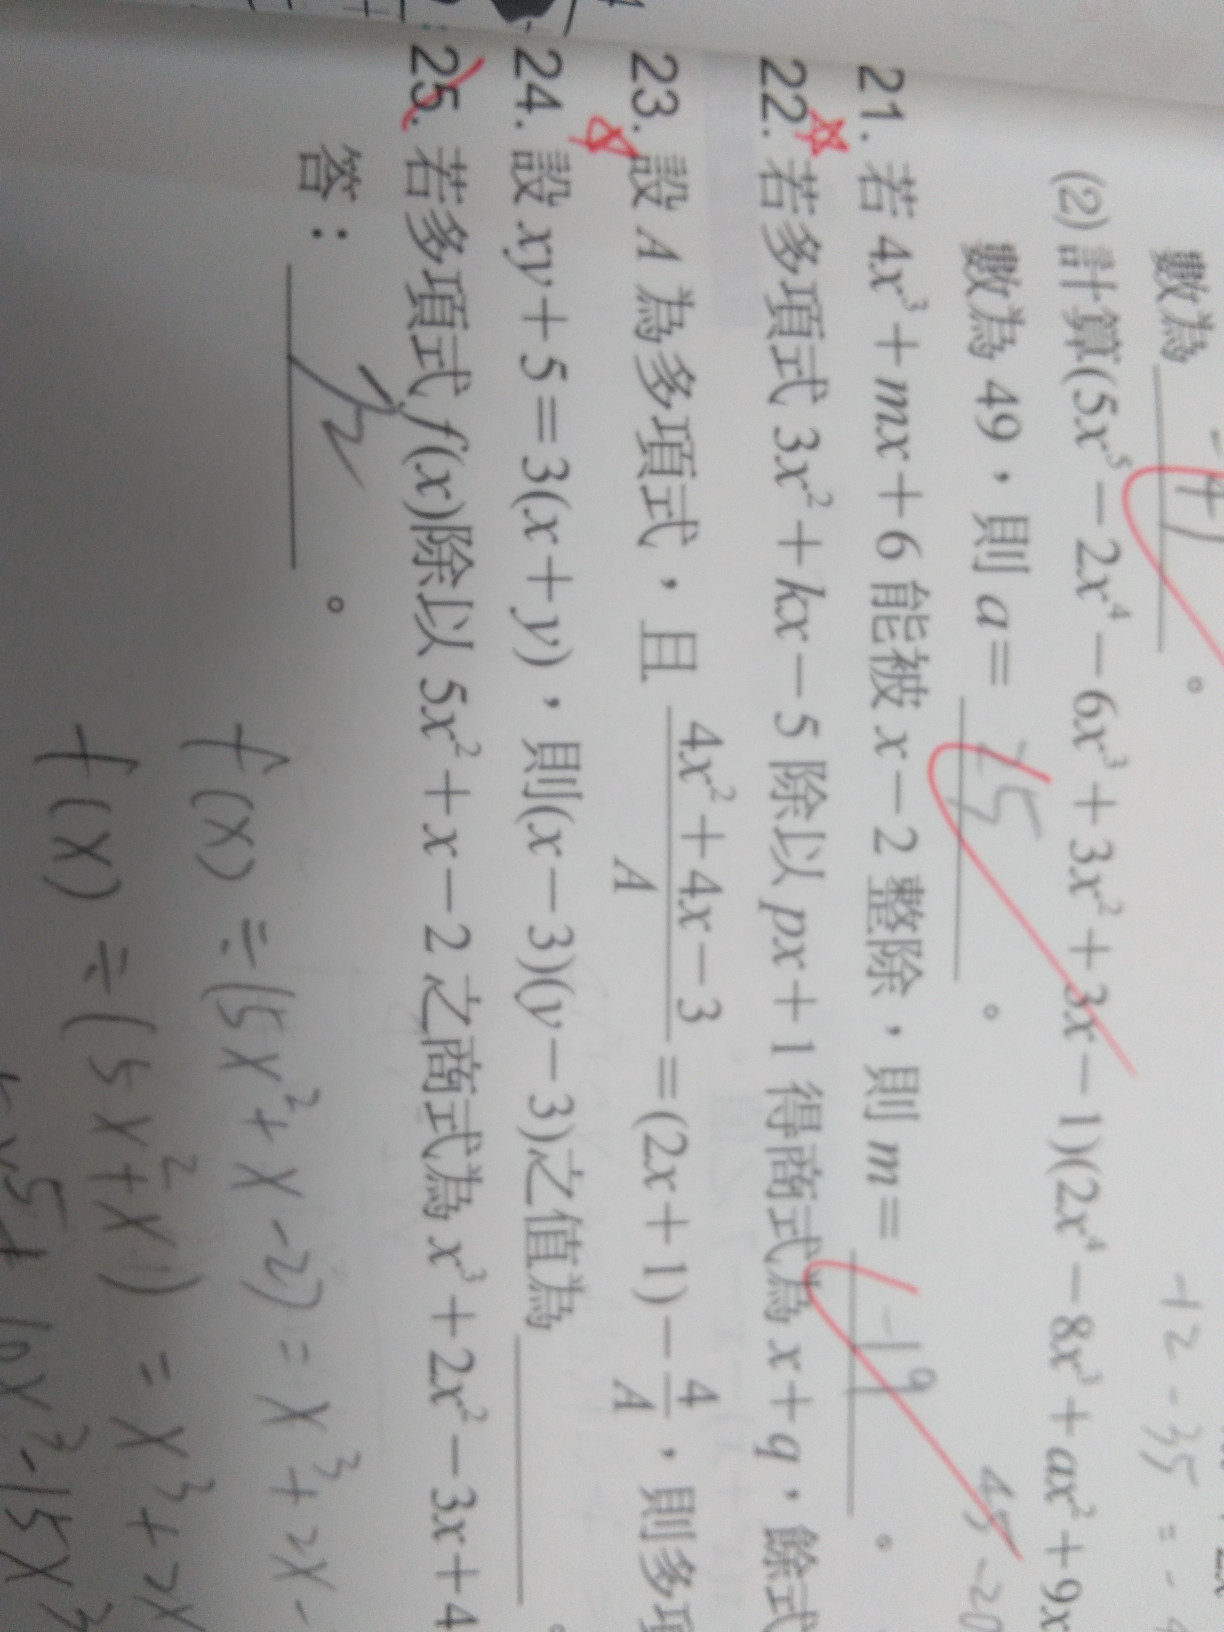 數為
(2) 計算(5x⁵−2x⁴−6x³+3x²+3x−1)(2x⁴−8x³+ax²+9x
數為 49，則 a=
21. 若 4x³+mx+6 能被 x−2 整除，則 m= -19 。
22. 若多項式 3x²+kx−5 除以 px+1 得商式為 x+q，餘式
23. 設 A 為多項式，且 (4x²+4x−3)/A =(2x+1)− 4/A ，則多項
24. 設 xy+5=3(x+y)，則(x−3)(y−3)之值為 。
25. 若多項式 f(x)除以 5x²+x−2 之商式為 x³+2x²−3x+4
答： 。
f(x)÷(5x²+x-2)=x³+2x-
f(x)÷(5x²+x-1)=x³+2x